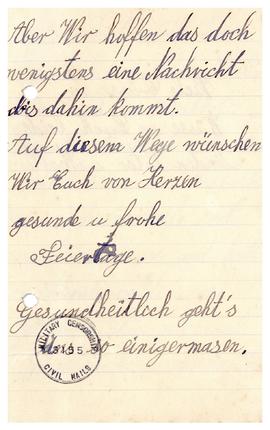 Aber Wir hoffen das doch
wenigstens eine Nachricht
bis dahin kommt.
Auf diesem Wege wünschen
Wir Euch von Herzen
gesunde u frohe
Feiertage.
Gesundheitlich geht's
so einigermasen.
MILITARY CENSORSHIP
CIVIL MAILS